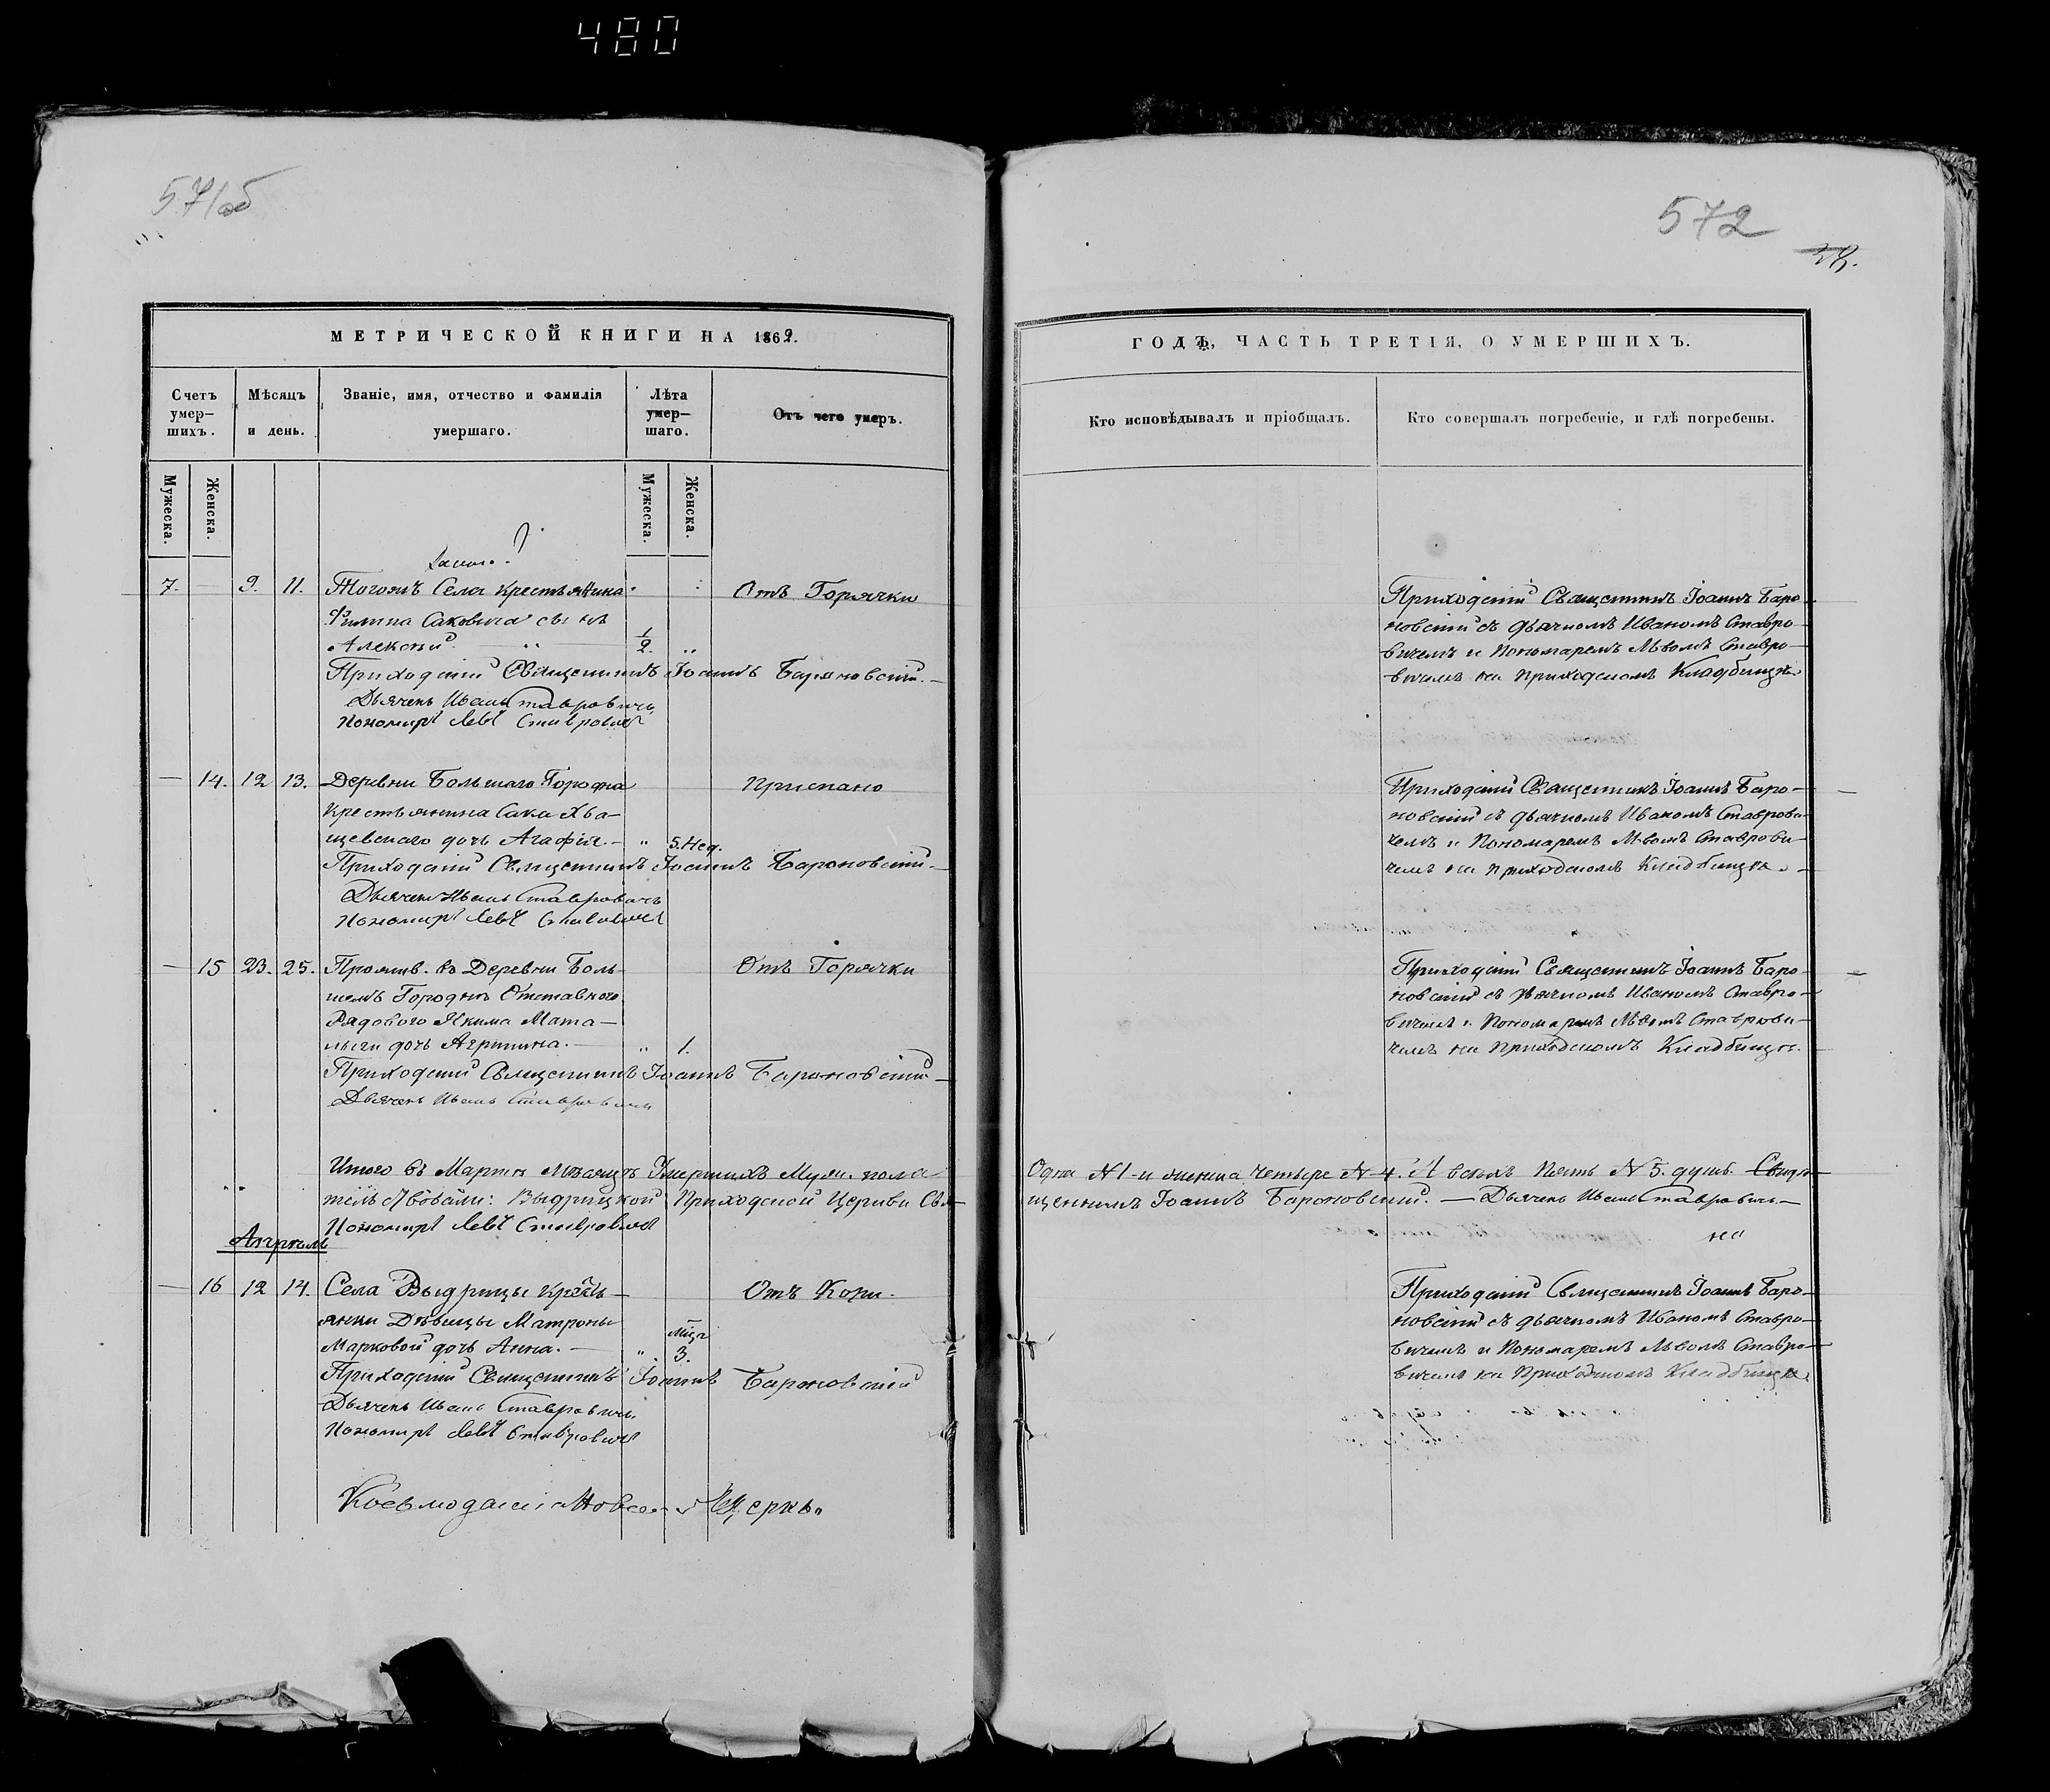 480
571об
572
МЕТРИЧЕСКОЙ КНИГИ НА 1869.
ГОДЪ, ЧАСТЬ ТРЕТІЯ, О УМЕРШИХЪ.
Счетъ умер-шихъ.
Мѣсяцъ и день.
Званіе, имя, отчество и фамилія умершаго.
Лѣта умер-шаго.
Отъ чего умеръ.
Кто исповѣдывалъ и пріобщалъ.
Кто совершалъ погребеніе, и гдѣ погребены.
Мужеска.
Женска.
Мужеска.
Женска.
7. — 9. 11. Тогожъ Села Крестьянина
Филипа Саковича сынъ
Алексѣй 1/2. „
Отъ Горячки
Приходскій Священникъ Іоаннъ Барановскій.
Дьячекъ Иванъ Ставровичъ
Пономарь Левъ Ставровичъ
Приходскій Священникъ Іоаннъ Баро-
новскій съ дьячкомъ Иваномъ Ставро-
вичемъ и Пономаремъ Львомъ Ставро-
вичемъ на Приходскомъ Кладбищѣ.
— 14. 12 13. Деревни Большаго Городна
Крестьянина Сака Хва-
щевскаго дочь Агафія. — „ 5. Нед.
Приспано
Приходскій Священникъ Іоаннъ Бароновскій —
Дьячекъ Иванъ Ставровичъ
Пономарь Левъ Ставровичъ
Приходскій Священникъ Іоаннъ Баро-
новскій съ дьячкомъ Иваномъ Ставрови-
чемъ и Пономаремъ Львомъ Ставрови-
чемъ на Приходскомъ Кладбищѣ. —
— 15 23. 25. Прожив. въ Деревни Боль-
шомъ Городнѣ Отставного
Рядового Якима Мата-
дочь Агрипина. — „ 1.
Отъ Горячки
Приходскій Священникъ Іоаннъ Бароновскій —
Дьячекъ Иванъ Ставровичъ
Приходскій Священникъ Іоаннъ Баро-
новскій съ дьячкомъ Иваномъ Ставро-
вичемъ и Пономаремъ Львомъ Ставрови-
чемъ на Приходскомъ Кладбищѣ.
Итого въ Мартѣ Мѣсяцѣ Умершихъ Муж. пола
Одна № 1-и женска Четыре № 4. А всѣхъ Пять № 5. душъ. Свидѣ-
Выдрицкой Приходской Церкви Свя-
щенникъ Іоаннъ Бароновскій. — Дьячекъ Иванъ Ставровичъ —
Пономарь Левъ Ставровичъ
Апрѣль
— 16 12 14. Села Выдрицы Крестья-
янки Дѣвицы Матроны
Марковой дочь Анна. — „ мѣц. 3.
Отъ Кори.
Приходскій Священникъ Іоаннъ Бароновскій
Дьячекъ Иванъ Ставровичъ
Пономарь Левъ Ставровичъ
Приходскій Священникъ Іоаннъ Баро-
новскій съ дьячкомъ Иваномъ Ставро-
вичемъ и Пономаремъ Львомъ Ставро-
вичемъ на Приходскомъ Кладбищѣ